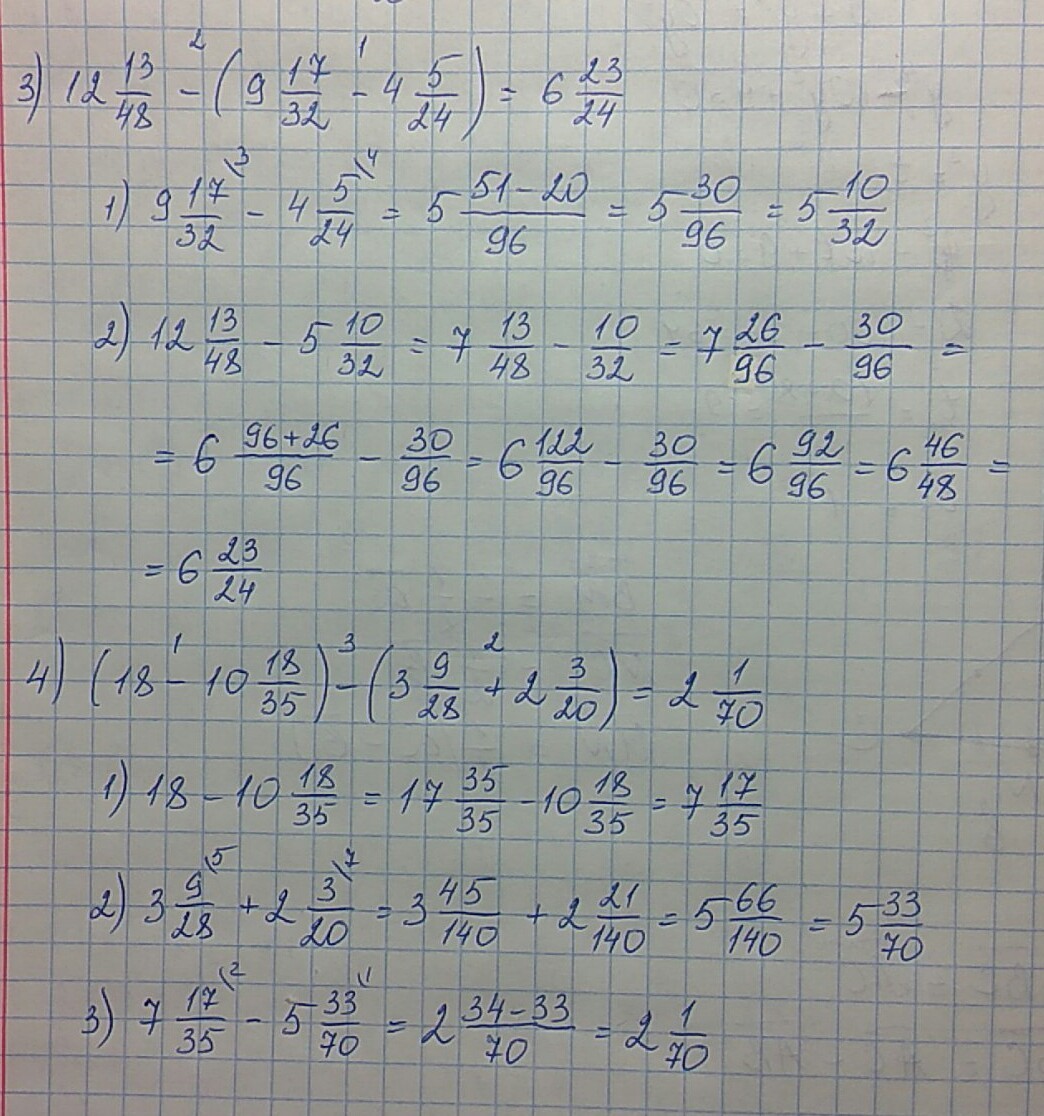 3) 12 13/48 - (9 17/32 - 4 5/24) = 6 23/24
1) 9 17/32 \3 - 4 5/24 \4 = 5 51-20/96 = 5 30/96 = 5 10/32
2) 12 13/48 - 5 10/32 = 7 13/48 - 10/32 = 7 26/96 - 30/96 =
= 6 96+26/96 - 30/96 = 6 122/96 - 30/96 = 6 92/96 = 6 46/48 =
= 6 23/24
4) (18 - 10 18/35) - (3 9/28 + 2 3/20) = 2 1/70
1) 18 - 10 18/35 = 17 35/35 - 10 18/35 = 7 17/35
2) 3 9/28 \5 + 2 3/20 \7 = 3 45/140 + 2 21/140 = 5 66/140 = 5 33/70
3) 7 17/35 \2 - 5 33/70 \1 = 2 34-33/70 = 2 1/70